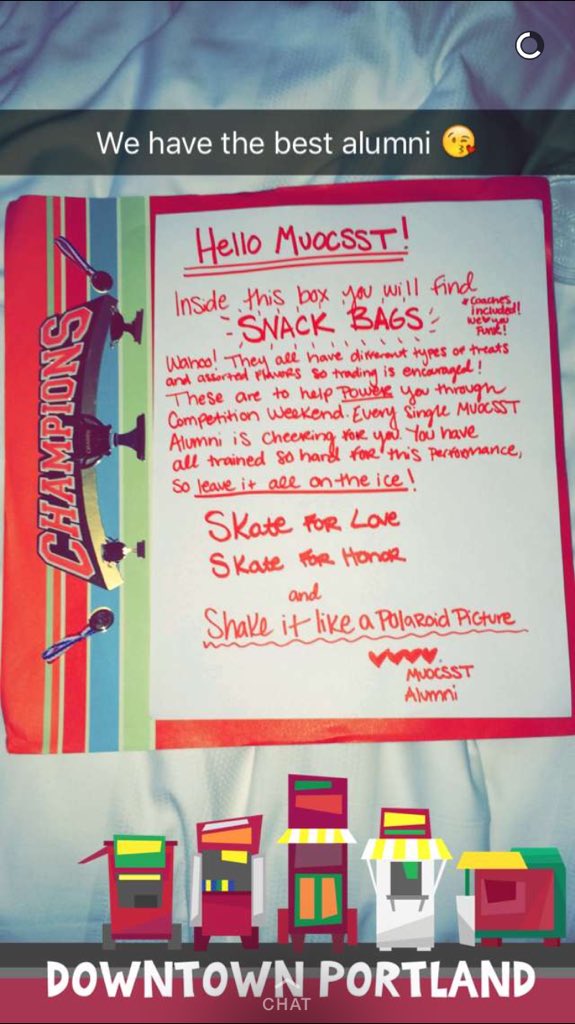 We have the best alumni 😘
CHAMPIONS
Hello MUOCSST!
Inside this box you will find
SNACK BAGS
*Coaches
included!
We ♥ you
Funk!
Wahoo! They all have different types of treats
and assorted flavors so trading is encouraged!
These are to help Power you through
Competition Weekend. Every Single MUOCSST
Alumni is cheering for you. You have
all trained so hard for this performance,
so leave it all on the ice!
Skate for Love
Skate for Honor
and
Shake it like a Polaroid Picture
♥♥♥♥
MUOCSST
Alumni
DOWNTOWN PORTLAND
CHAT